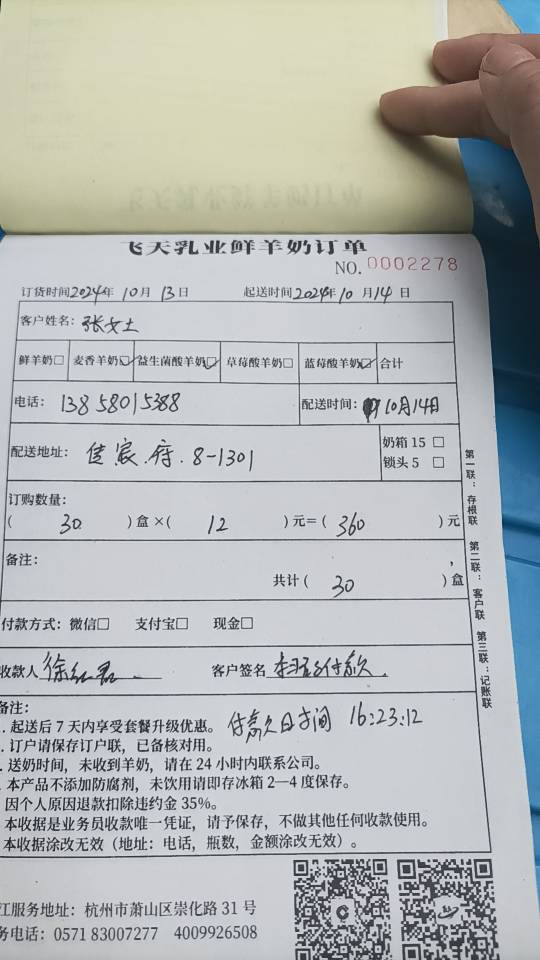 飞天乳业鲜羊奶订单
NO. 0002278
订货时间2024年 10月 13日 起送时间2024年10月14日
客户姓名：张女士
鲜羊奶□ 麦香羊奶☑ 益生菌酸羊奶☑ 草莓酸羊奶□ 蓝莓酸羊奶☑ 合计
电话：13858015388 配送时间：10月14日
配送地址：佳宸.府.8-1301 奶箱 15 □
锁头 5 □
订购数量：
( 30 )盒 ×( 12 )元=( 360 )元
备注：
共计( 30 )盒
付款方式：微信□ 支付宝□ 现金□
收款人 徐红 客户签名 付款.
备注：
. 起送后 7 天内享受套餐升级优惠。 付款日时间 16:23:12
. 订户请保存订户联，已备核对用。
. 送奶时间，未收到羊奶，请在 24 小时内联系公司。
. 本产品不添加防腐剂，未饮用请即存冰箱 2—4 度保存。
因个人原因退款扣除违约金 35%。
. 本收据是业务员收款唯一凭证，请予保存，不做其他任何收款使用。
. 本收据涂改无效（地址：电话，瓶数，金额涂改无效）。
江服务地址：杭州市萧山区崇化路 31 号
务电话：0571 83007277 4009926508
第一联：存根联 第二联：客户联 第三联：记账联